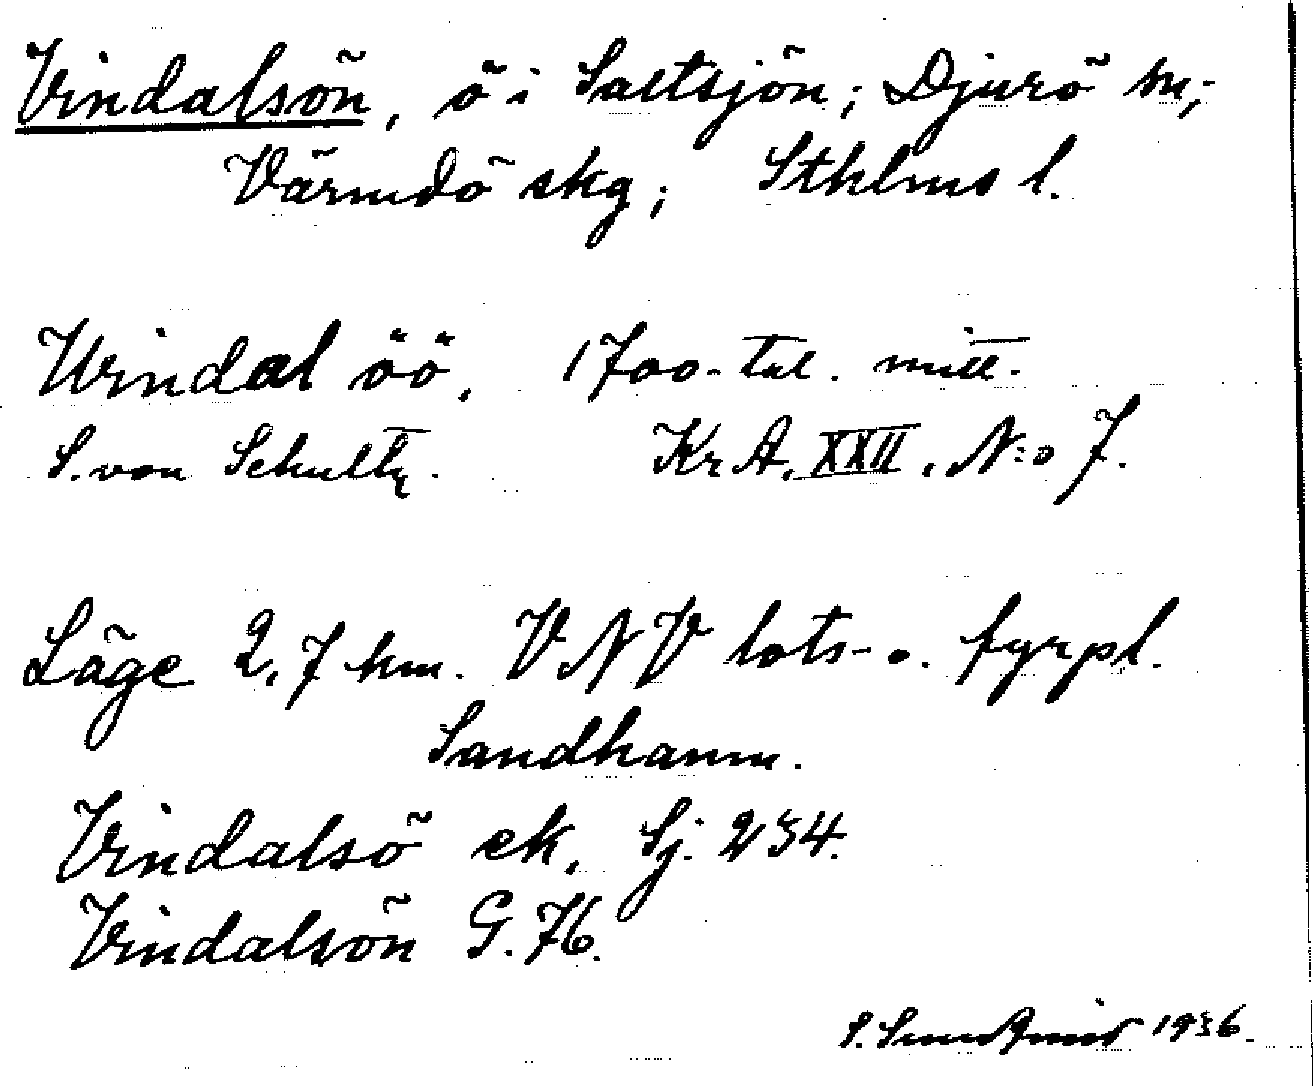 Vindalsön, ö i Saltsjön; Djurö sn;
Värmdö skg; Sthlms l.
Windal öö, 1700-tal. mitt.
S. von Schultz. Kr A. XXII. N:o 7.
Läge 2,7 km. VNV lots- o. fyrpl.
Sandhamn.
Vindalsö ek. Sj. 234.
Vindalsön G. 76.
S. 1936.